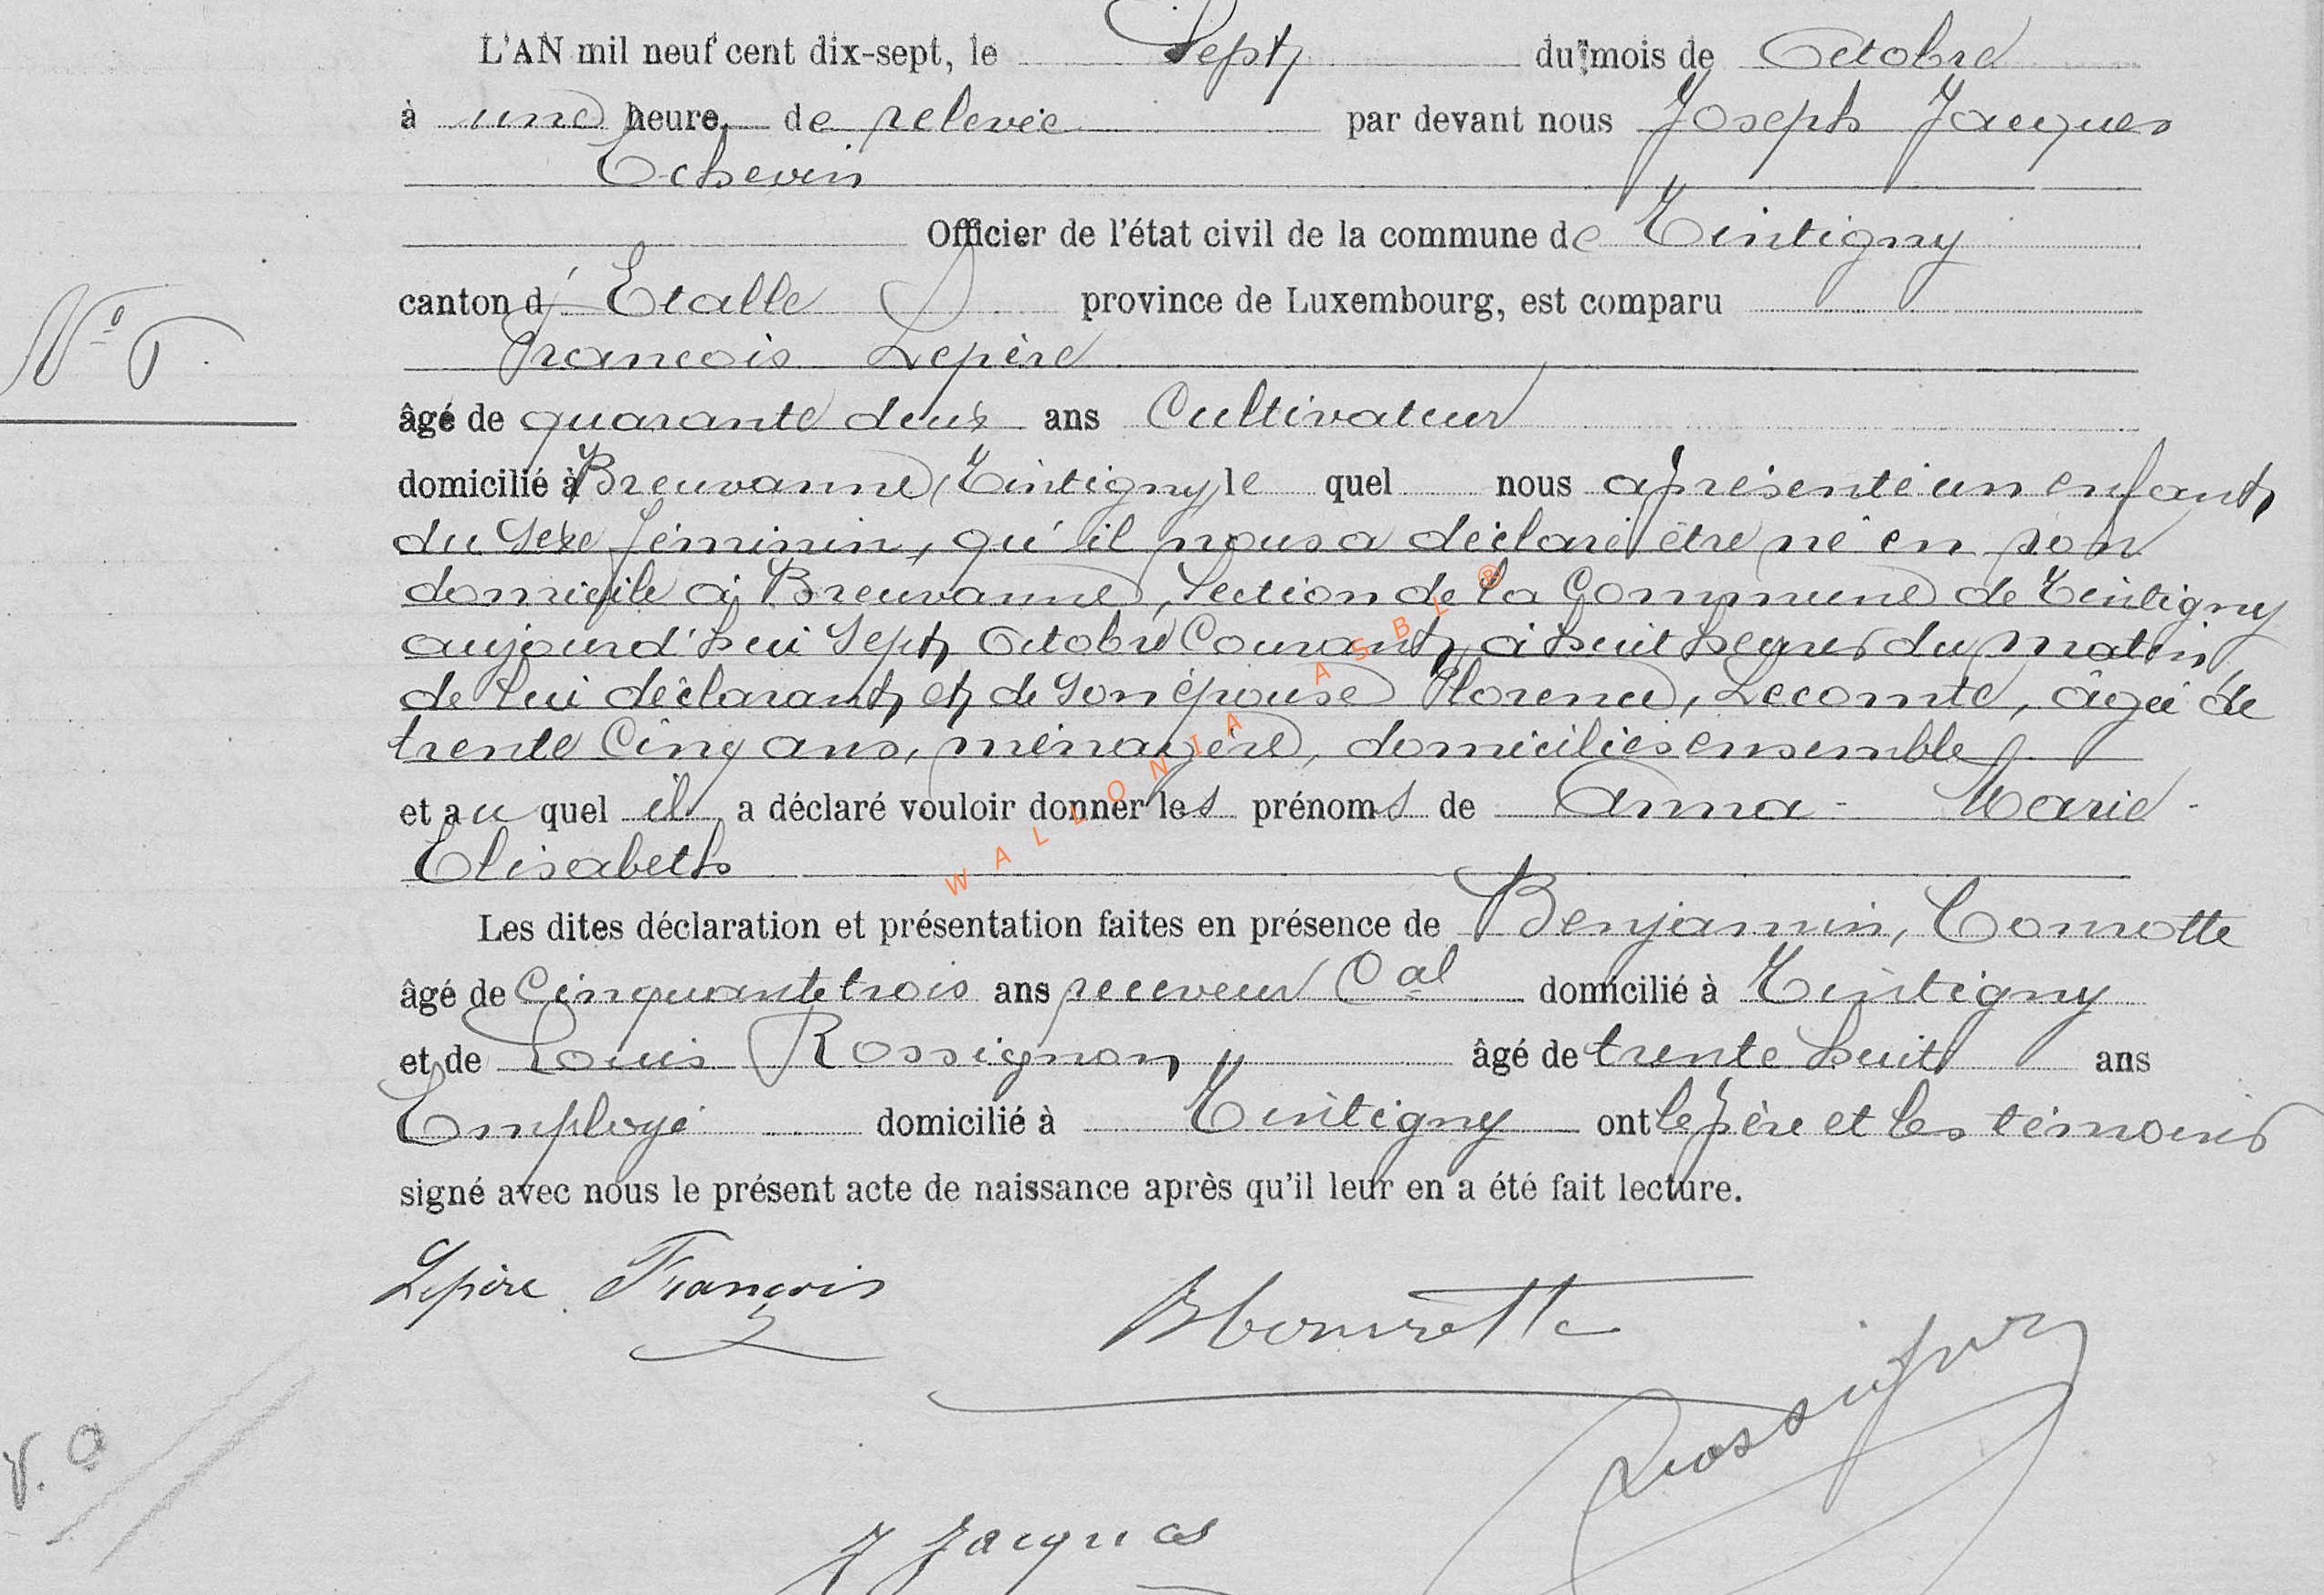 L'AN mil neuf cent dix-sept, le Sept du mois de Octobre
à une heure de relevée par devant nous Joseph Jacques
Echevin
Officier de l'état civil de la commune de Tintigny
canton d'Etalle province de Luxembourg, est comparu
N°
François Lepère
âgé de quarante deux ans Cultivateur
domicilié à Breuvanne (Tintigny) le quel nous a présenté un enfant
du Sexe féminin, qu'il nous a déclaré être né en son
domicile à Breuvanne, Section de la Commune de Tintigny
aujourd'hui Sept Octobre Courant, à huit heures du matin,
de lui déclarant et de Son épouse Florence, Lecomte, âgée de
trente Cinq ans, ménagère, domiciliés ensemble
et au quel il a déclaré vouloir donner les prénoms de Anna - Marie -
Elisabeth
WALLONIA ASBL ®
Les dites déclaration et présentation faites en présence de Benjamin, Comrotte
âgé de Cinquante trois ans receveur Cal domicilié à Tintigny
et de Louis Rossignon, âgé de trente huit ans
Employé domicilié à Tintigny ont le père et les témoins
signé avec nous le présent acte de naissance après qu'il leur en a été fait lecture.
Lepère François
BComrotte
Rossignon
J Jacques